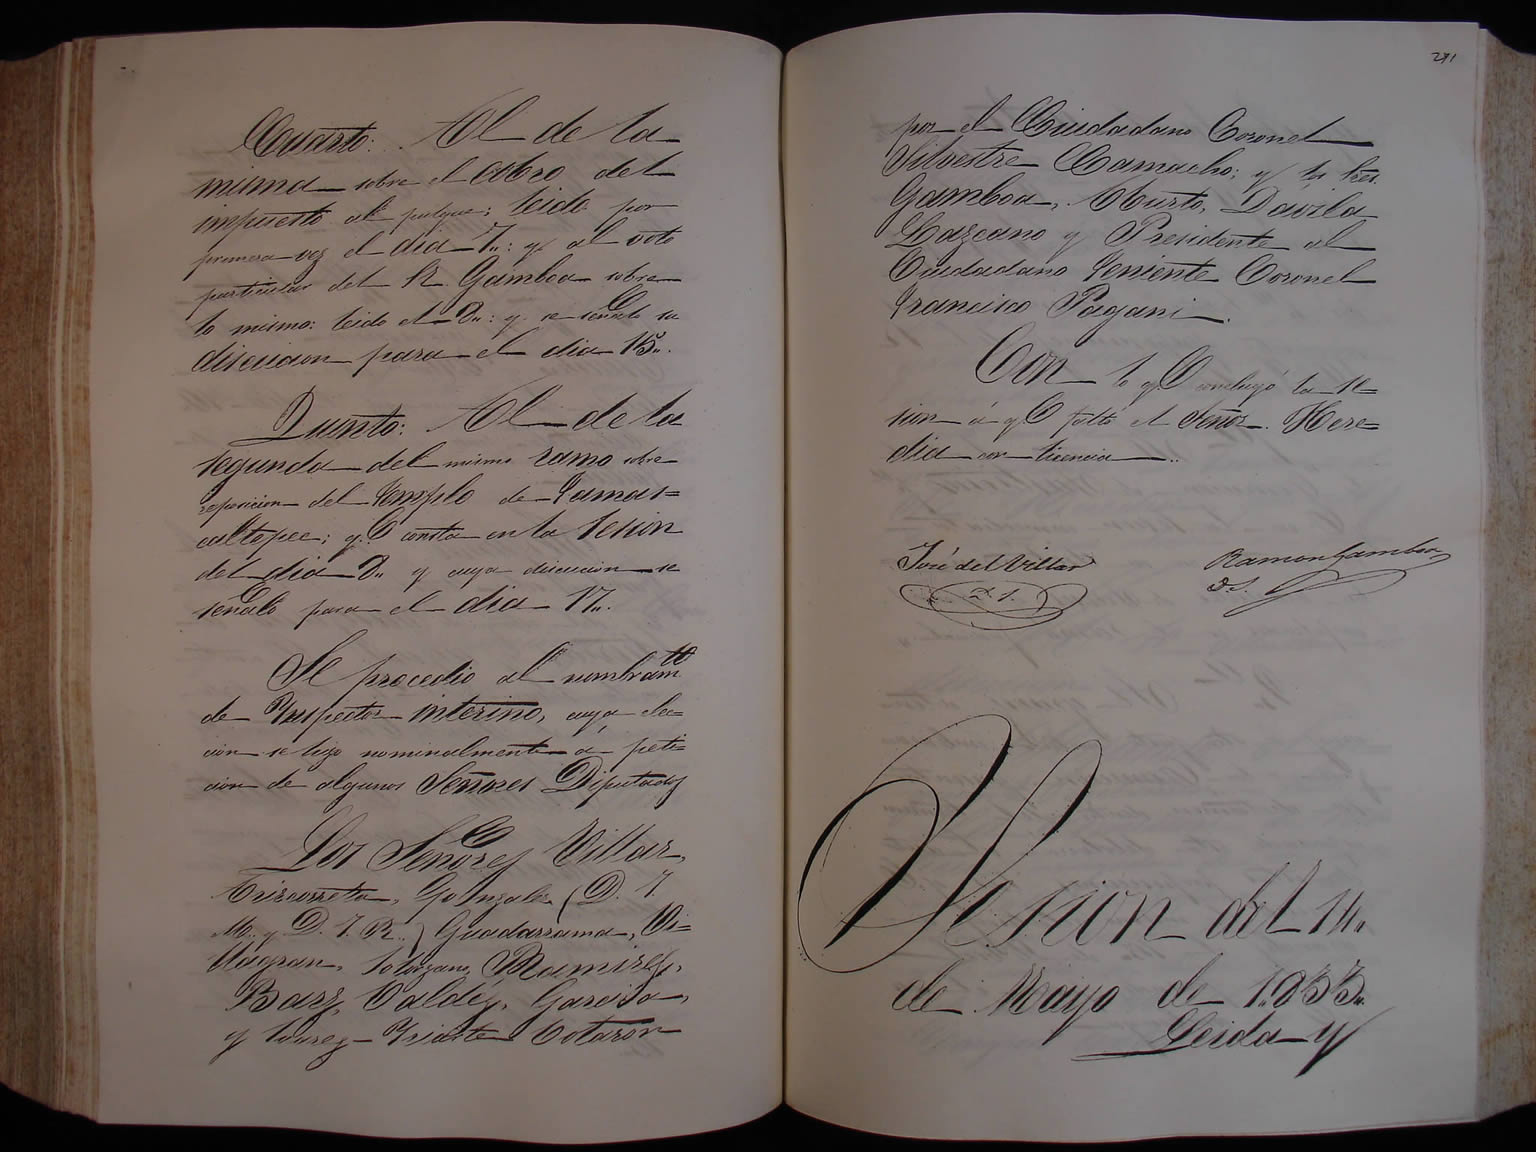 Cuarto: Al de la
misma sobre el cobro del
impuesto al pulque; leido por
primera vez el dia 7,,: y al voto
particular del Sr. Gamboa sobre
lo mismo: leido el 8,,: y se señaló su
discucion para el dia 15,,.
Quinto: Al de la
segunda del mismo ramo sobre
reposicion del Templo de Temas=
caltepec; q.e consta en la sesion
del dia 8,, y cuya discucion se
señaló para el dia 17,,.
Se procedio al nombram.to
de Prefecto interino, cuya elec=
cion se hizo nominalmente á peti=
cion de algunos Señores Diputados
Los Señores Villar,
Gonzales (D. J.
M. y D. J. R.) Guadarrama, Vi=
llagran, Solorzano, Ramirez,
Barz, Valdez, Garcia,
y Suarez Yriarte votaron
271
por el Ciudadano Coronel
Silvestre Camacho; y los Sres.
Gamboa, Murto, Davila
Lazcano y Presidente al
Ciudadano Teniente Coronel
Francisco Pagani.
Con lo q.e concluyó la se=
sion á q.e faltó el Señor Here=
dia con licencia.
José del Villar Ramon Gamboa
D. S. D. S.
Sesion del 14,,
de Mayo de 1,,833,,
Leida y